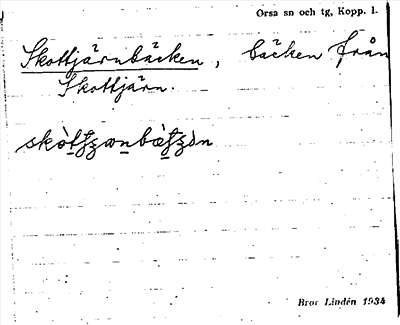 Orsa sn och tg, Kopp. l.
Skottjärnbäcken, bäcken från
Skottjärn.
Bror Lindén 1934